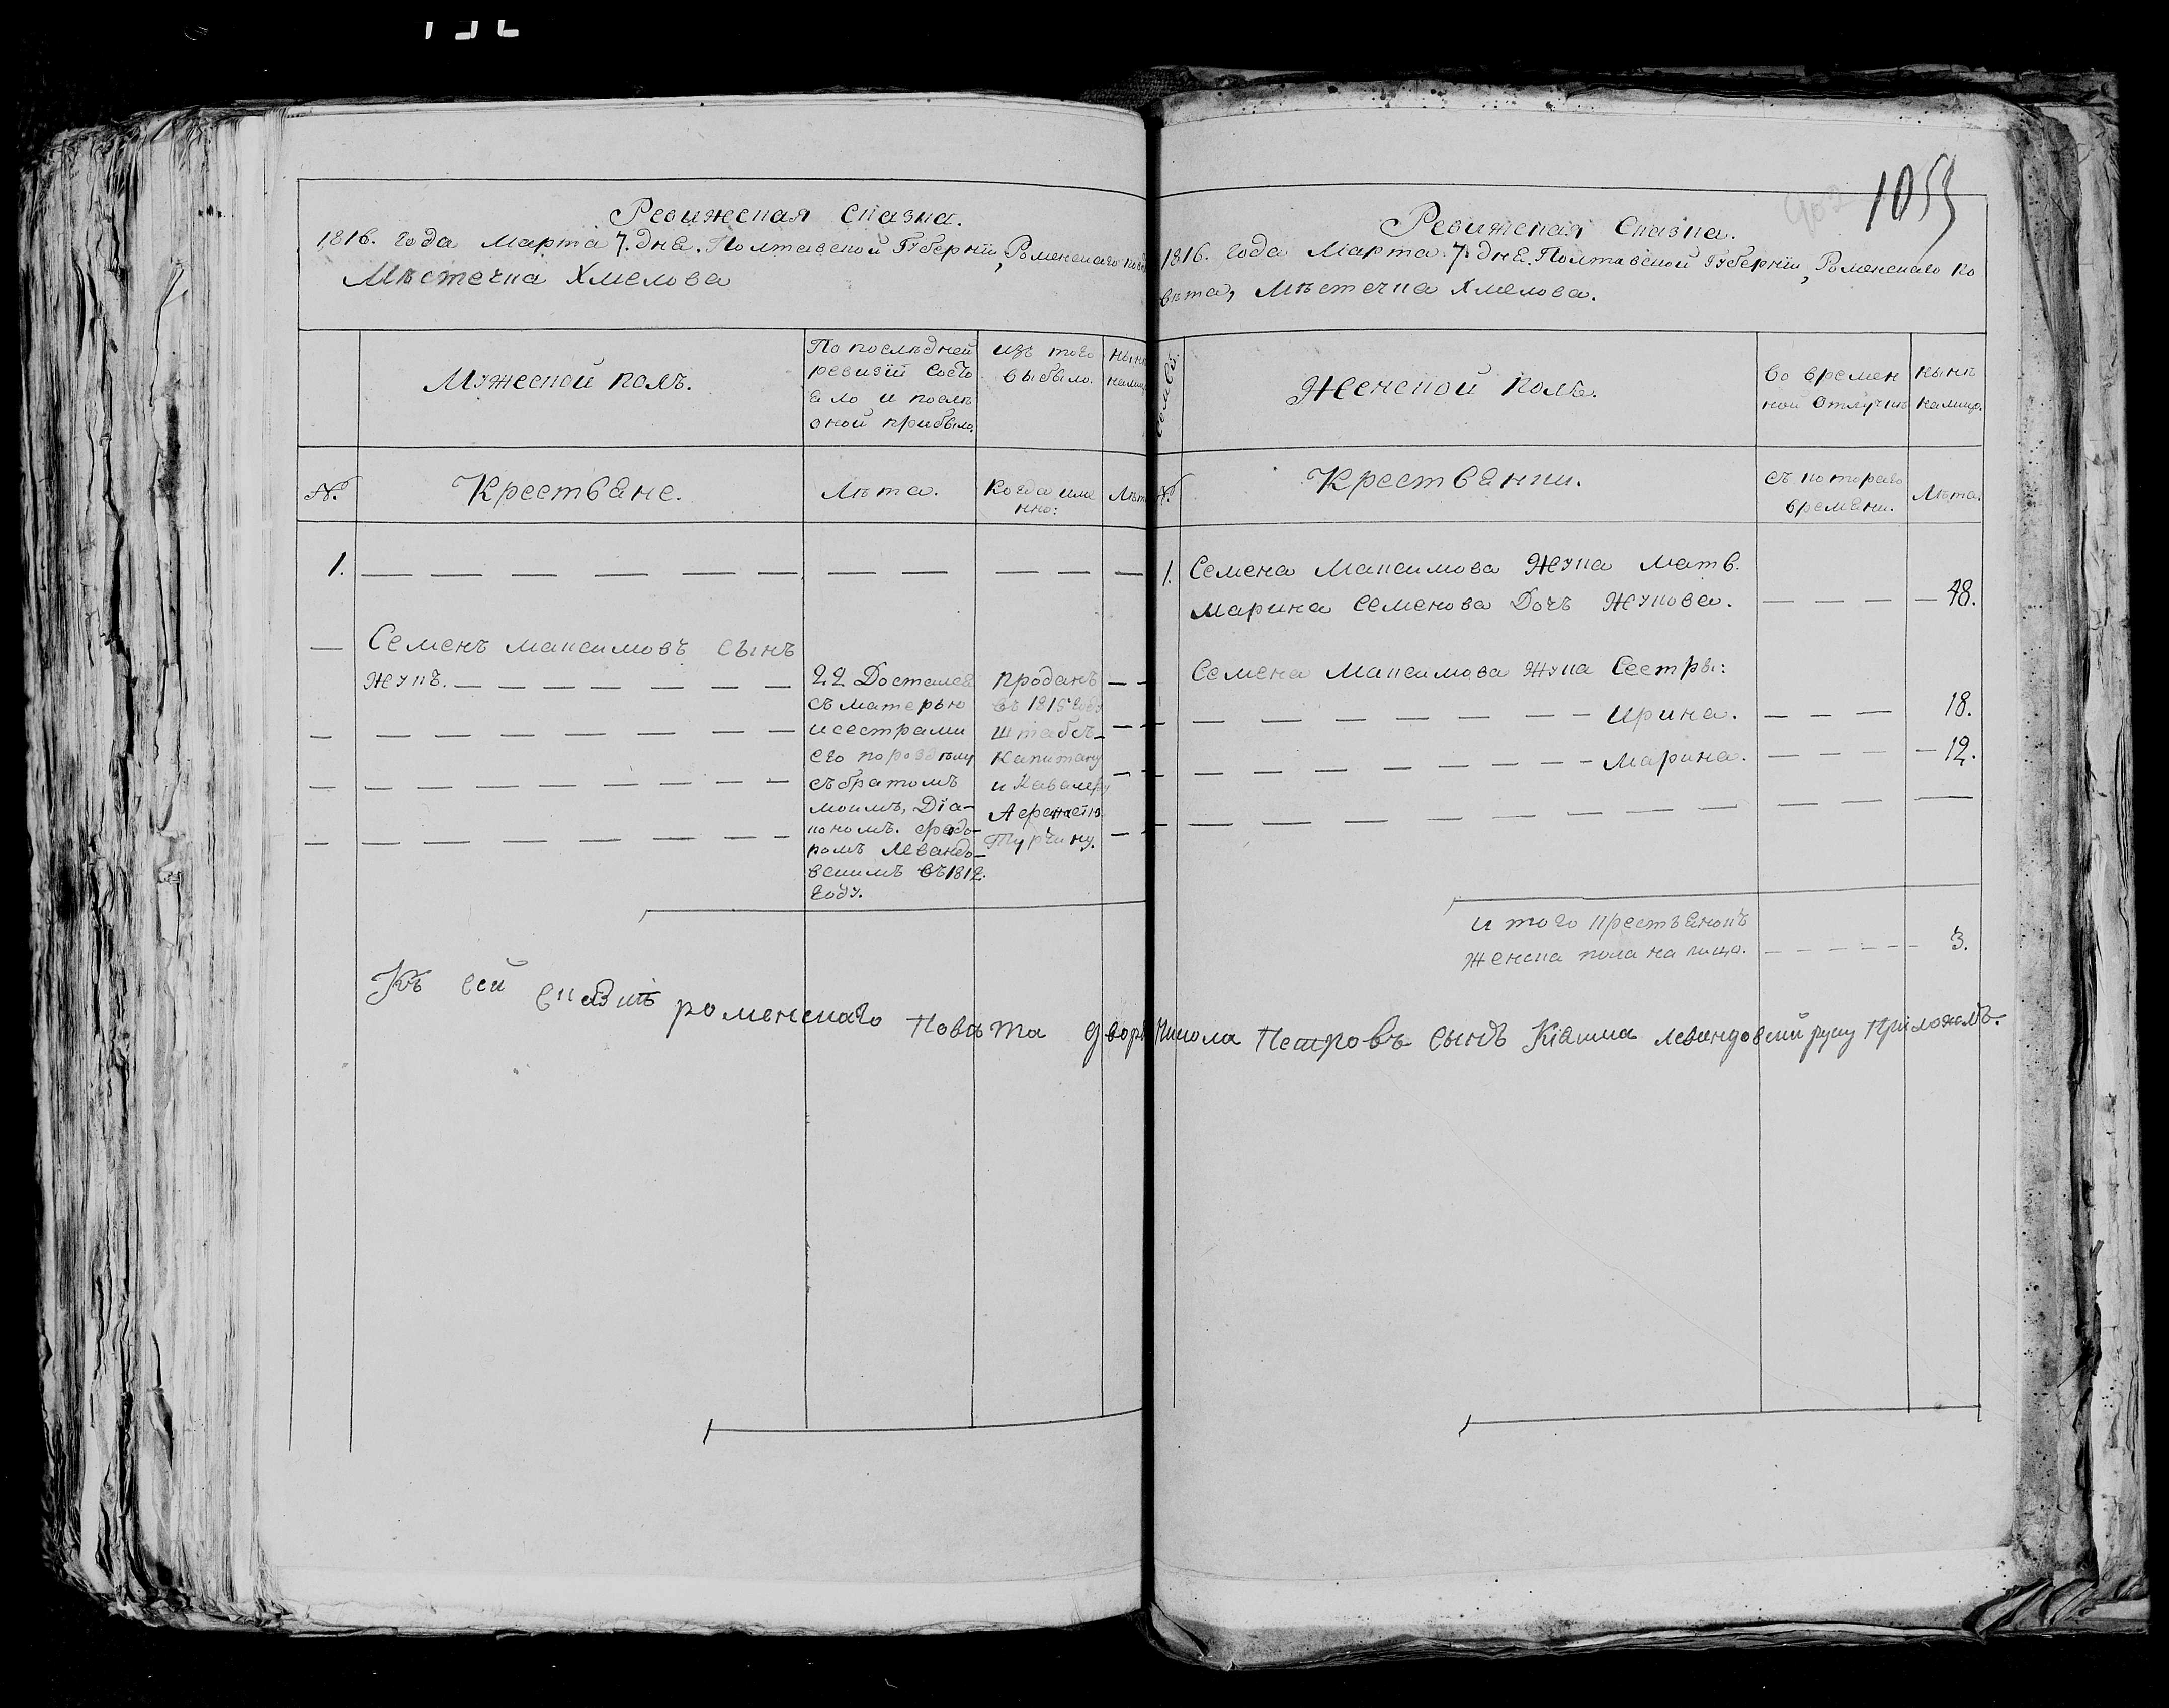 Ревижская сказка.
1816. года Марта 7. дня. Полтавской Губерніи, Роменскаго пов
Мѣстечка Хмелова
Мужескои полъ.
По послѣдней
ревизіи состо
яло и послѣ
оной прибыло.
изъ того
выбыло.
нынѣ
налиц
№
Крестьяне.
Лѣта.
Когда име
нно:
Лѣт
1.
Семенъ Максимовъ сынъ
Жукъ.
22 Достался
съ матерью
и сестрами
его поразделу
съ братомъ
моимъ, Діа-
кономъ. Федо-
ромъ Леванdо-
вскимъ въ 1812.
году.
проданъ
въ 1815 году
штабсъ-
Капитану
и Кавалеру
Турчину.
Къ сей сказкѣ роменскаго Повѣта двор
1055
902
Ревижская Сказка.
1816. года Марта 7. дня. Полтавской Губерніи, Роменскаго по
вѣта, Мѣстечка Хмелова.
семьи.
Женской полъ.
во времен
ной Отлучкѣ
нынѣ
налицо.
№
Крестьянки.
съ котораго
времени.
Лѣта.
1. Семена Максимова Жука мать.
Марина Семенова Дочь Жукова. 48.
Семена Максимова Жука Сестры:
Ирина. 18.
Марина. 12.
итого крестьянокъ
женска пола на лицо. 3.
Никола Петровъ сынъ Левандовский руку Приложилъ.